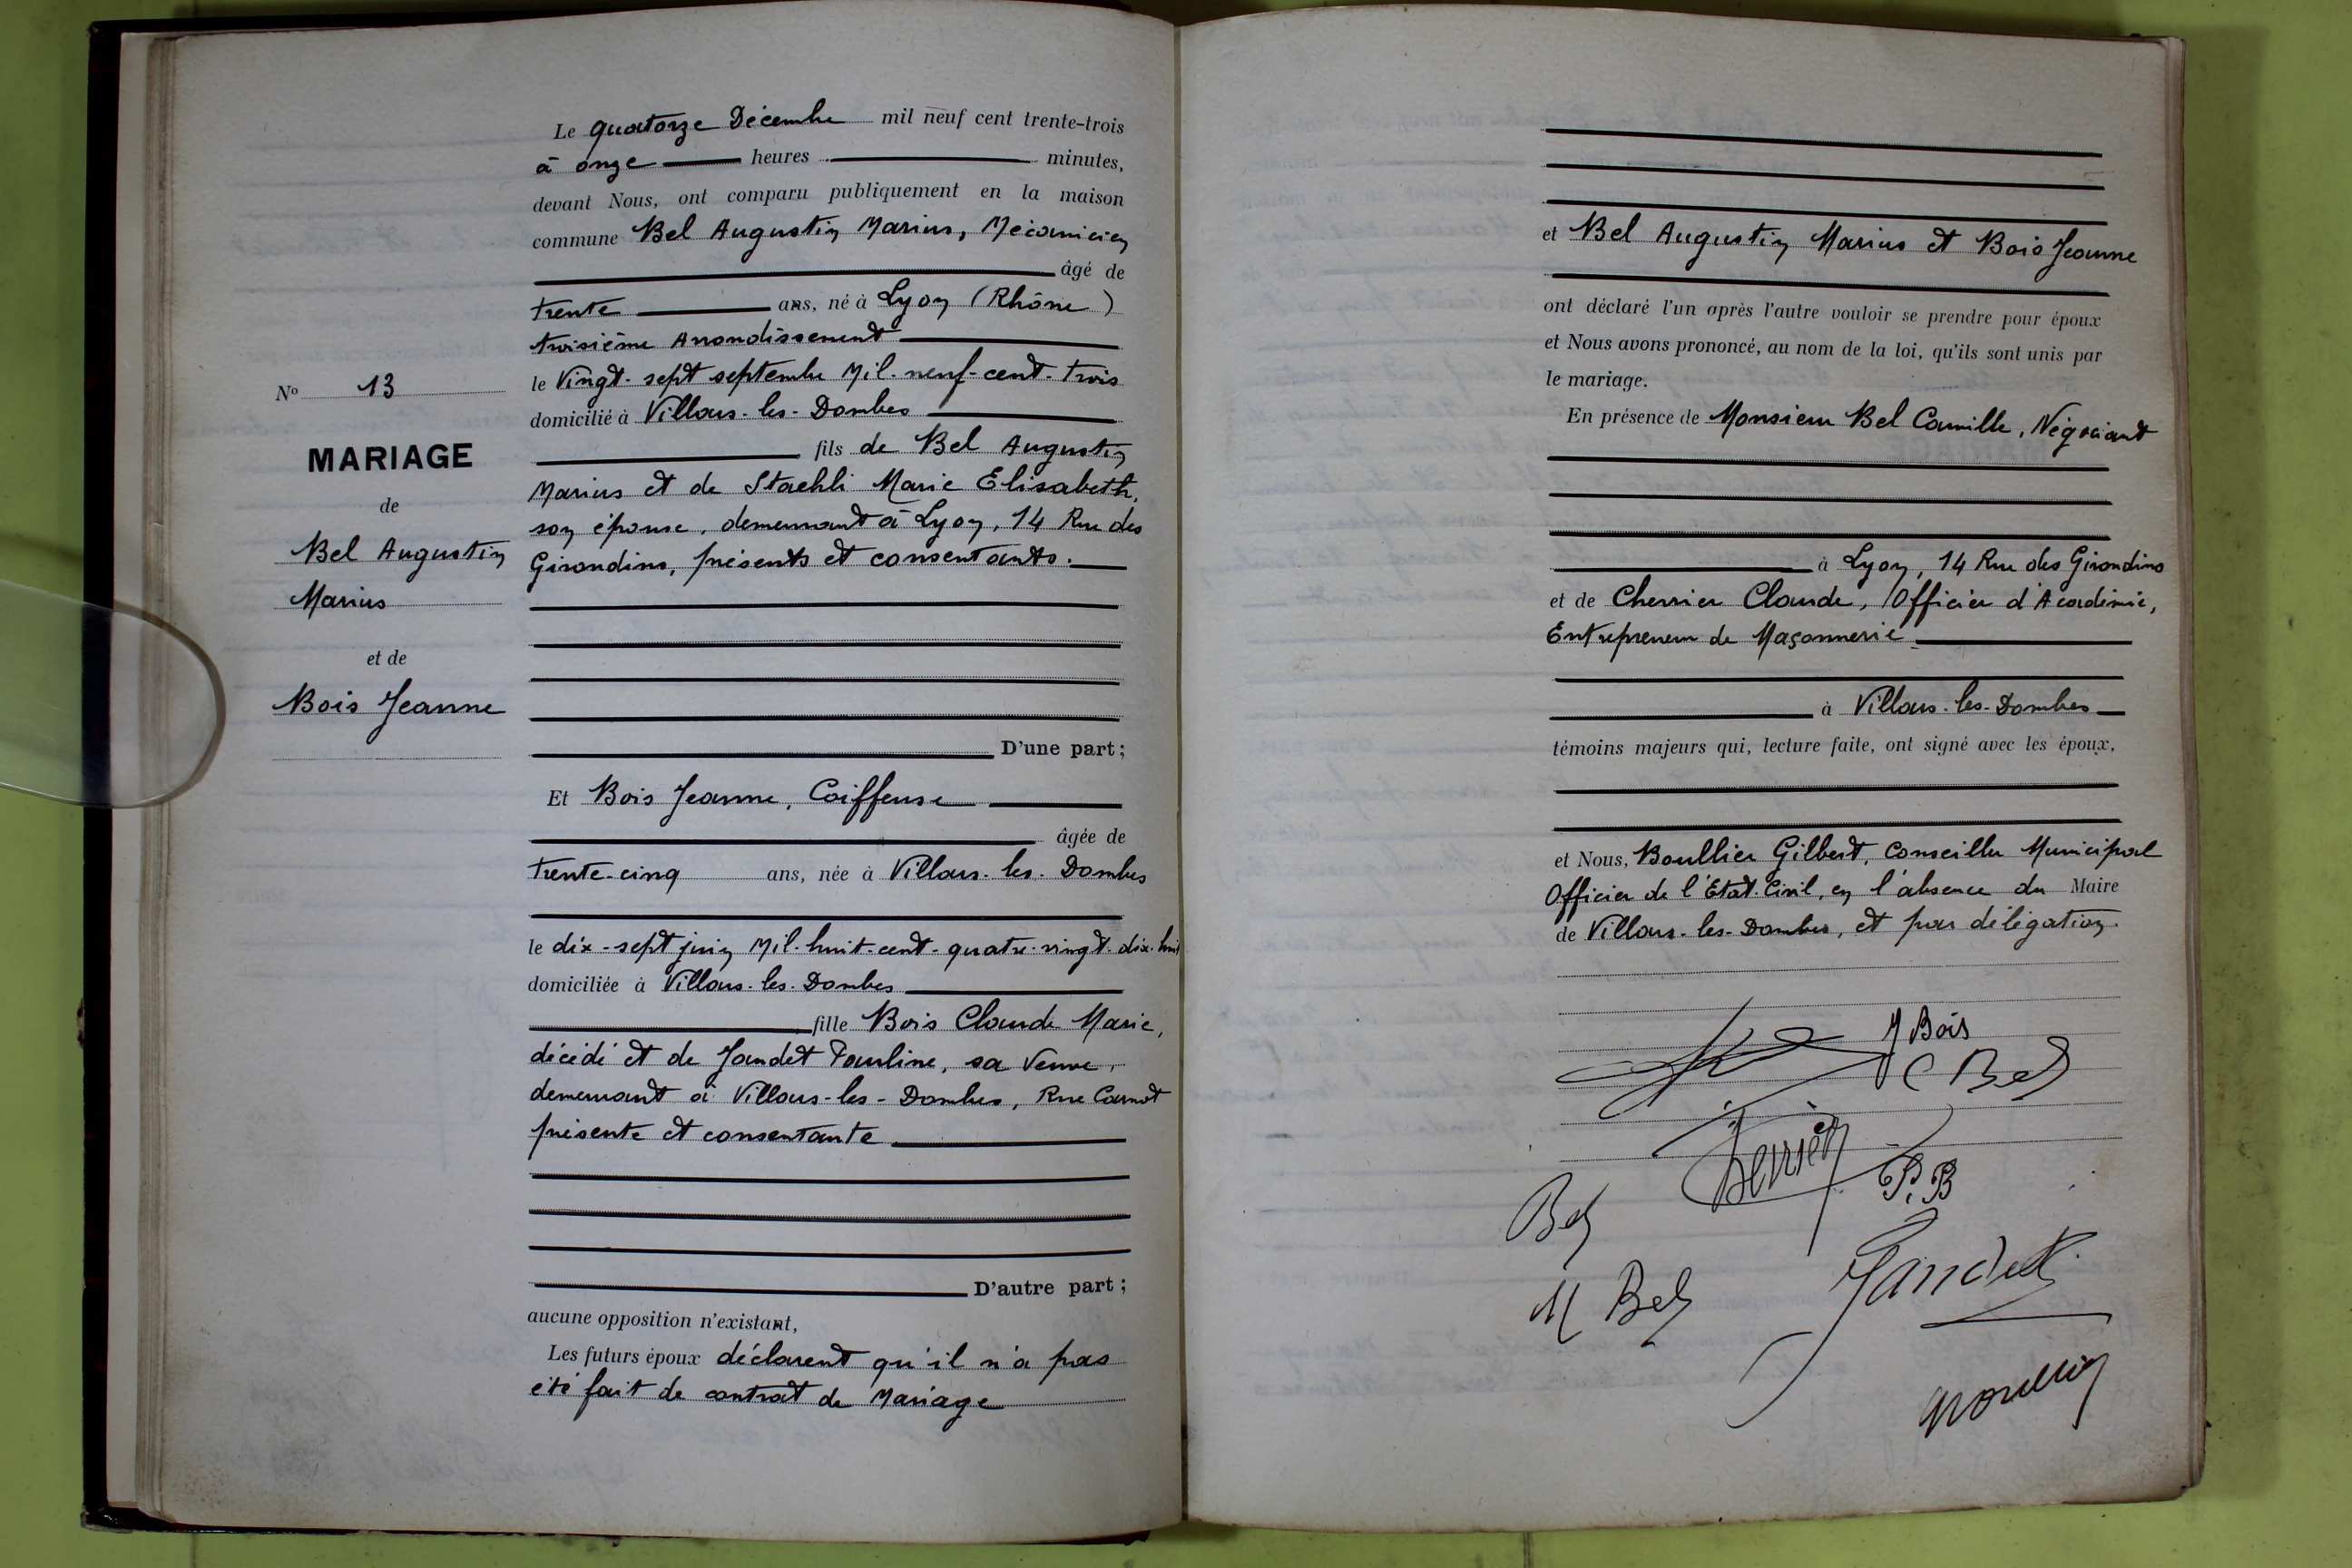 No 13
MARIAGE
de
Bel Augustin
Marius
et de
Bois Jeanne
Le quatorze Décembre mil neuf cent trente-trois
à onze heures minutes,
devant Nous, ont comparu publiquement en la maison
commune Bel Augustin Marius, Mécanicien
âgé de
trente ans, né à Lyon (Rhône)
troisième Arrondissement
le Vingt-sept septembre Mil-neuf-cent-trois
domicilié à Villars-les-Dombes
fils de Bel Augustin
Marius et de Staehli Marie Elisabeth,
son épouse, demeurant à Lyon, 14 Rue des
Girondins, présents et consentants.
D'une part;
Et Bois Jeanne, Coiffeuse
âgée de
trente-cinq ans, née à Villars-les-Dombes
le dix-sept juin Mil-huit-cent-quatre-vingt-dix-huit
domiciliée à Villars-les-Dombes
fille Bois Claude Marie,
décédé et de Jandet Pauline, sa Veuve,
demeurant à Villars-les-Dombes, Rue Carnot
présente et consentante
D'autre part;
aucune opposition n'existant,
Les futurs époux déclarent qu'il n'a pas
été fait de contrat de Mariage
et Bel Augustin Marius et Bois Jeanne
ont déclaré l'un après l'autre vouloir se prendre pour époux
et Nous avons prononcé, au nom de la loi, qu'ils sont unis par
le mariage.
En présence de Monsieur Bel Camille, Négociant
à Lyon, 14 Rue des Girondins
et de Cherrier Claude, Officier d'Académie,
Entrepreneur de Maçonnerie
à Villars-les-Dombes
témoins majeurs qui, lecture faite, ont signé avec les époux,
et Nous, Boullier Gilbert, Conseiller Municipal
Officier de l'Etat-Civil, en l'absence du Maire
de Villars-les-Dombes, et par délégation.
J Bois
C Bel
P. B
Bel
M Bel
Jandet